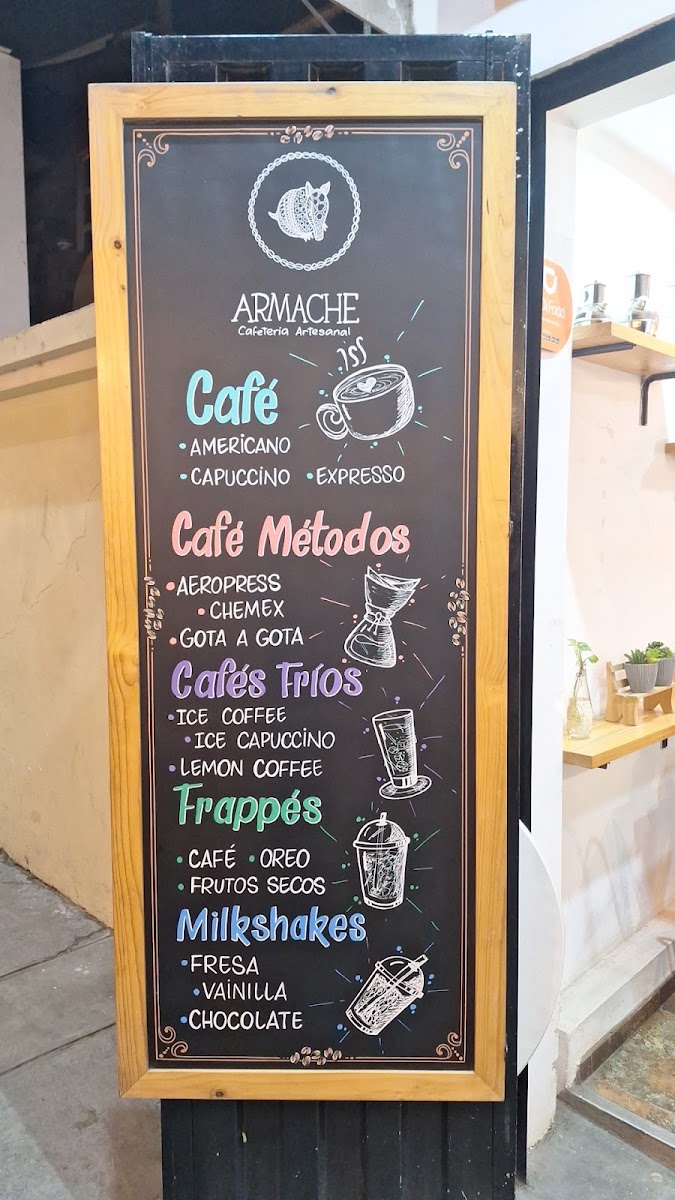 ARMACHE
Cafetería Artesanal
Café
• AMERICANO
• CAPUCCINO • EXPRESSO
Café Métodos
• AEROPRESS
• CHEMEX
• GOTA A GOTA
Cafés Fríos
• ICE COFFEE
• ICE CAPUCCINO
• LEMON COFFEE
Frappés
• CAFÉ • OREO
• FRUTOS SECOS
Milkshakes
• FRESA
• VAINILLA
• CHOCOLATE
Food